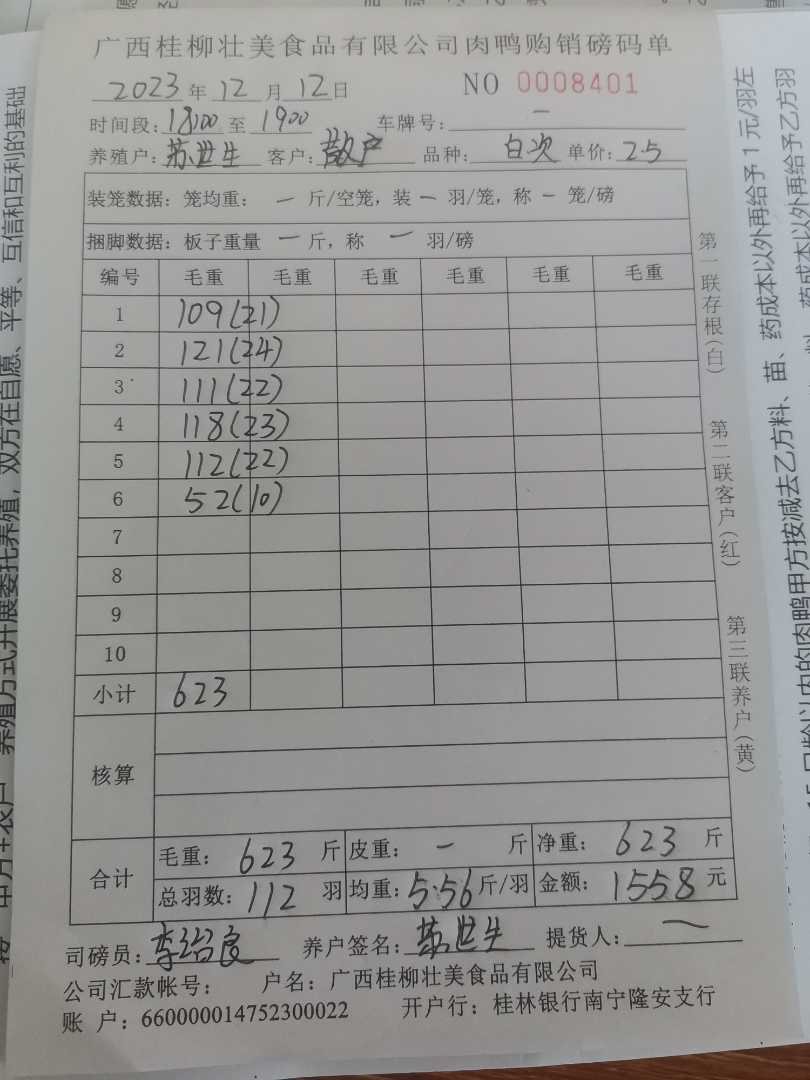 广西桂柳壮美食品有限公司肉鸭购销磅码单
2023年12月12日 NO 0008401
时间段:18:00至1900 车牌号: —
养殖户:苏世生 客户:散户 品种:白次 单价:2.5
装笼数据:笼均重: — 斤/空笼,装 — 羽/笼,称 — 笼/磅
捆脚数据:板子重量 — 斤,称 — 羽/磅
编号 毛重 毛重 毛重 毛重 毛重 毛重
1 109(21)
2 121(24)
3 111(22)
4 118(23)
5 112(22)
6 52(10)
7
8
9
10
小计 623
核算
合计 毛重: 623 斤 皮重: — 斤 净重: 623 斤
总羽数: 112 羽 均重: 5.56 斤/羽 金额: 1558 元
司磅员:李绍良 养户签名:苏世生 提货人: —
公司汇款帐号: 户名:广西桂柳壮美食品有限公司
账 户:660000014752300022 开户行:桂林银行南宁隆安支行
第一联存根(白)
第二联客户(红)
第三联养户(黄)
养殖方式开展委托养殖,双方在自愿、平等、互信和互利的基础
的肉鸭甲方按减去乙方料、苗、药成本以外再给予1元/羽左
药成本以外再给予乙方羽